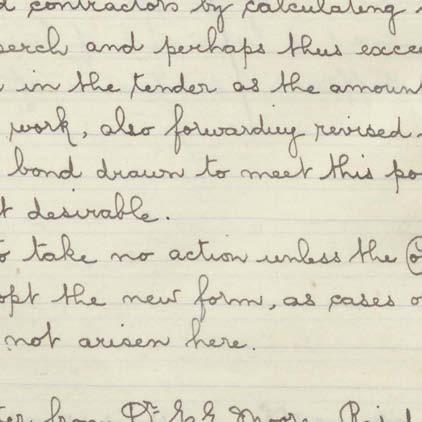 contractors by calculating
perch and perhaps thus excee
in the tender as the amount
work, also forwarding revised
bond drawn to meet this po
t desirable.
to take no action unless the
opt the new form, as cases o
not arisen here.
ter from Dr. E. E. Moore